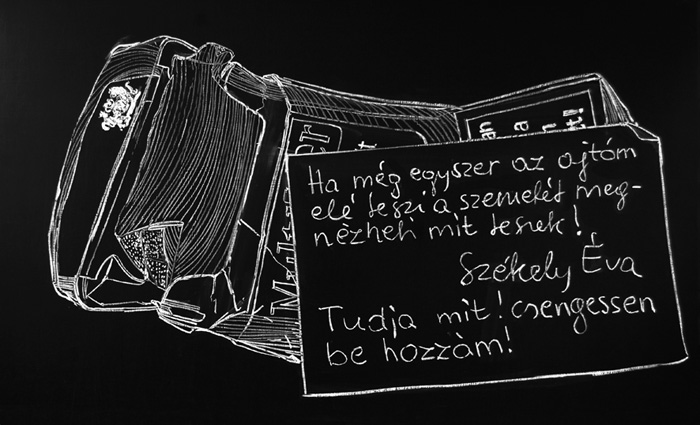 Ha még egyszer az ajtóm
elé teszi a szemetét meg-
nézheti mit teszek!
Székely Éva
Tudja mit! csengessen
be hozzám!